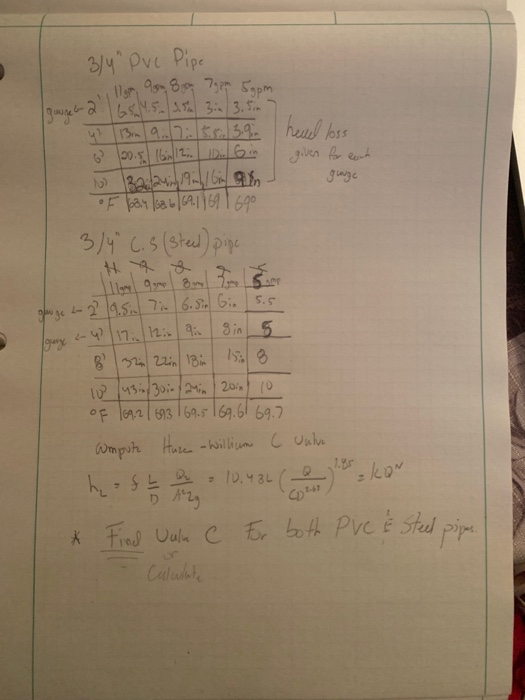 3/4" PVC Pipe
11gpm 9gpm 8gpm 7gpm 5gpm
gauge ← 2' 6.5in 4.5in 3.5in 3in 3.5in
4' 13in 9in 7in 5.5in 3.9in
6' 20.5in 16in 12in 10in 6in
10' 32in 24in 19in 16in 9in
°F 68.4 68.6 69.1 69 69°
head loss
given for each
gauge
3/4" C.S (Steel) pipe
11 9 8 7 5
11gpm 9gpm 8gpm 7gpm 5gpm
gauge ← 2' 9.5in 7in 6.5in 6in 5.5
gauge ← 4' 17in 12in 9in 8in 5
8' 32in 22in 18in 15in 8
10' 43in 30in 24in 20in 10
°F 69.2 69.3 69.5 69.6 69.7
compute Haze-William C value
h_L = f L/D Q²/A²2g = 10.43L (Q/CD^2.63)^1.85 = kQ^N
* Find Value C For both PVC & Steel pipes
or
Calculate